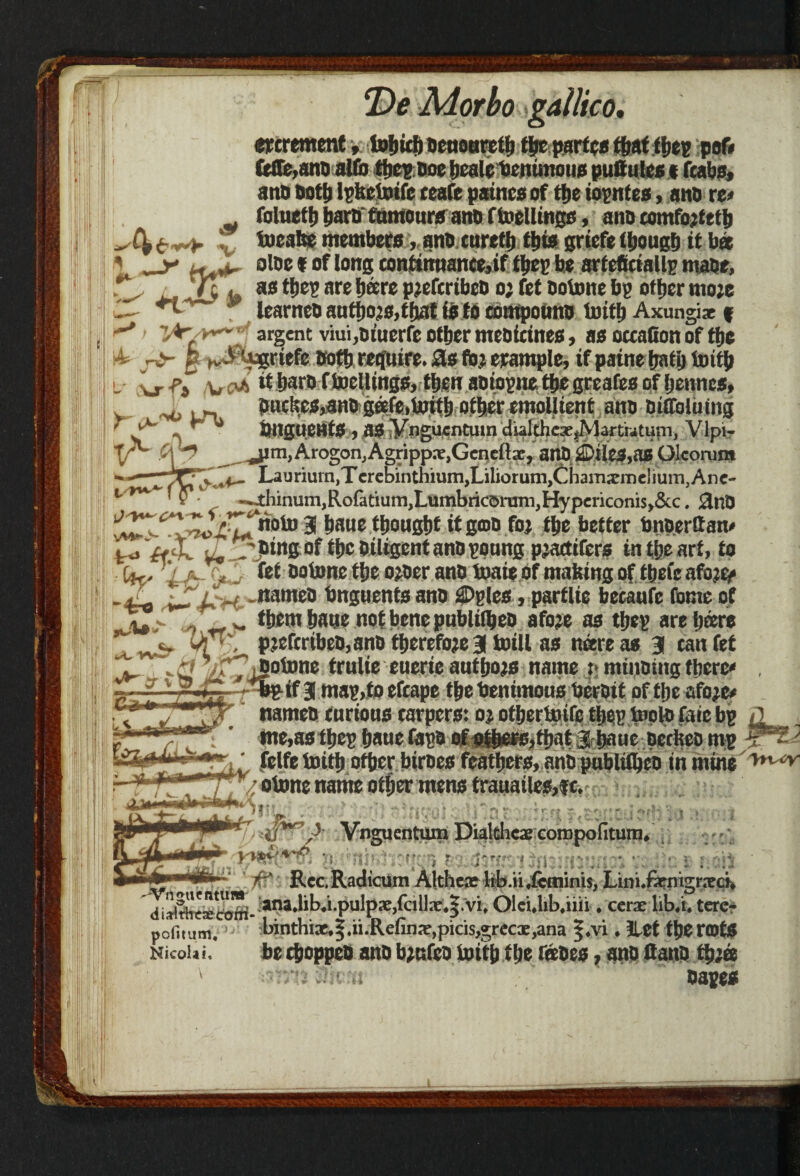 De Morbo gallico.
excrement, which deuoureth the partes that they pos-
sesse, and also they doe heale venimous pustules & scabs,
and doth lykewise cease paines of the ioyntes, and re-
solueth hard tumours and swellings, and comforteth
weake members, and cureth this griefe though it bée
olde & of long continuance, if they be arteficially made,
as they are héere prescribed or set downe by other more
learned authors, that is to compound with Axungiæ &
argent viui, diuerse other medicines, as occasion of the
griefe doth require. As for example, if paine hath with
it hard swellings, then adioyne the greases of hennes,
duckes, and géese, with other emollient and dissoluing
vnguents, as Vnguentum dialtheæ, Martiatum, Vlpi-
um, Arogon, Agrippæ, Genestæ, and Oiles, as Oleorum
Laurium, Terebinthium, Liliorum, Chamæmelium, Ane-
thinum, Rosatium, Lumbricorum, Hypericonis, &c. And
now I haue thought it good for the better vnderstan-
ding of the diligent and young practisers in the art, to
set downe the order and waie of making of these afore-
named vnguents and Oyles, partlie because some of
them haue not bene published afore as they are héere
prescribed, and therefore I will as néere as I can set
downe trulie euerie authors name: minding there-
by if I may, to escape the venimous verdit of the afore-
named curious carpers: or otherwise they wold saie by
me, as they haue sayd of others, that I haue decked my
selfe with other birdes feathers, and published in mine
owne name other mens trauailes, &c.
Vnguentum Dialtheæ compositum.
Vnguentum
dialtheæ com-
positum.
Nicolai.
Rec. Radicum Altheæ lib.ii. seminis, Lini. fænigræci,
ana. lib.i. pulpæ, scillæ. ℥.vi. Olei. lib. iiii. ceræ lib.i. tere-
binthiæ. ℥.ii. Resinæ, picis, grecæ, ana ℥.vi. Let the roots
be chopped and brused with the séedes, and stand thrée
dayes